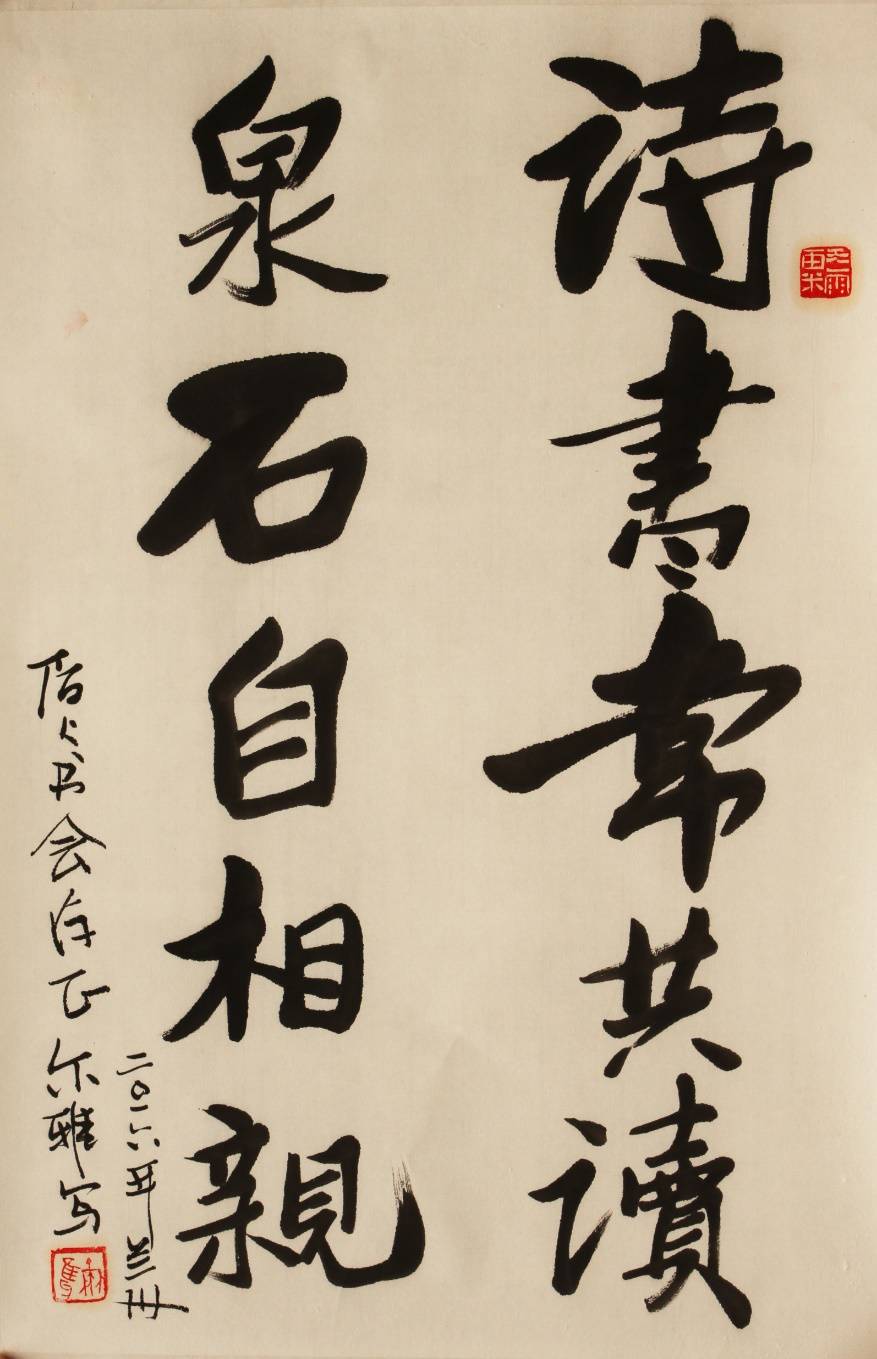 詩書常共讀
泉石自相親
二〇一六年
书会存正尔雅写